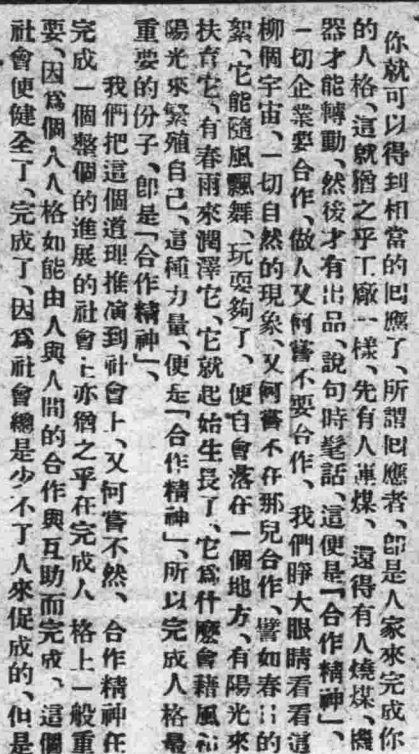 你就可以得到相當的囘應了、所謂囘應者、卽是人家來完成你
的人格、這就猶之乎工廠一樣、先有人運煤、還得有人燒煤、機
器才能轉動、然後才有出品、說句時髦話、這便是「合作精神」、
一切企業要合作、做人又何嘗不要合作、我們睜大眼睛看看這
個宇宙、一切自然的現象、又何嘗不在那兒合作、譬如春日的
柳絮、它能隨風飄舞、玩耍夠了、便自會落在一個地方、有陽光來
扶育它、有春雨來潤澤它、它就起始生長了、它爲什麼會藉風和
陽光來繁殖自己、這種力量、便是「合作精神」、所以完成人格最
重要的份子、卽是「合作精神」、
我們把這個道理推演到社會上、又何嘗不然、合作精神在
完成一個整個的進展的社會上亦猶之乎在完成人格上一般重
要、因爲個人人格如能由人與人間的合作與互助而完成、這個
社會便健全了、完成了、因爲社會總是少不了人來促成的、但是